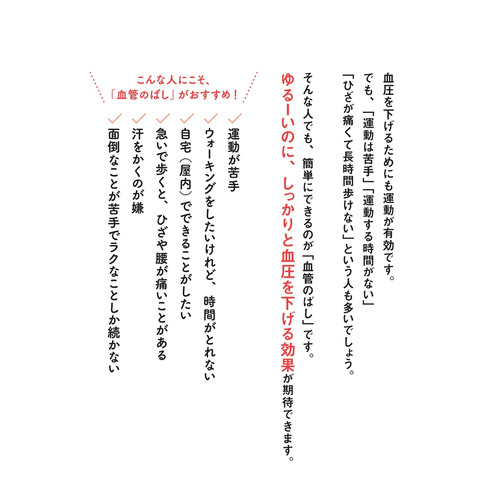 血圧を下げるためにも運動が有効です。
でも、「運動は苦手」「運動する時間がない」
「ひざが痛くて長時間歩けない」という人も多いでしょう。
そんな人でも、簡単にできるのが「血管のばし」です。
ゆるーいのに、しっかりと血圧を下げる効果が期待できます。
こんな人にこそ、
「血管のばし」がおすすめ！
運動が苦手
ウォーキングをしたいけれど、時間がとれない
自宅（屋内）でできることがしたい
急いで歩くと、ひざや腰が痛いことがある
汗をかくのが嫌
面倒なことが苦手でラクなことしか続かない